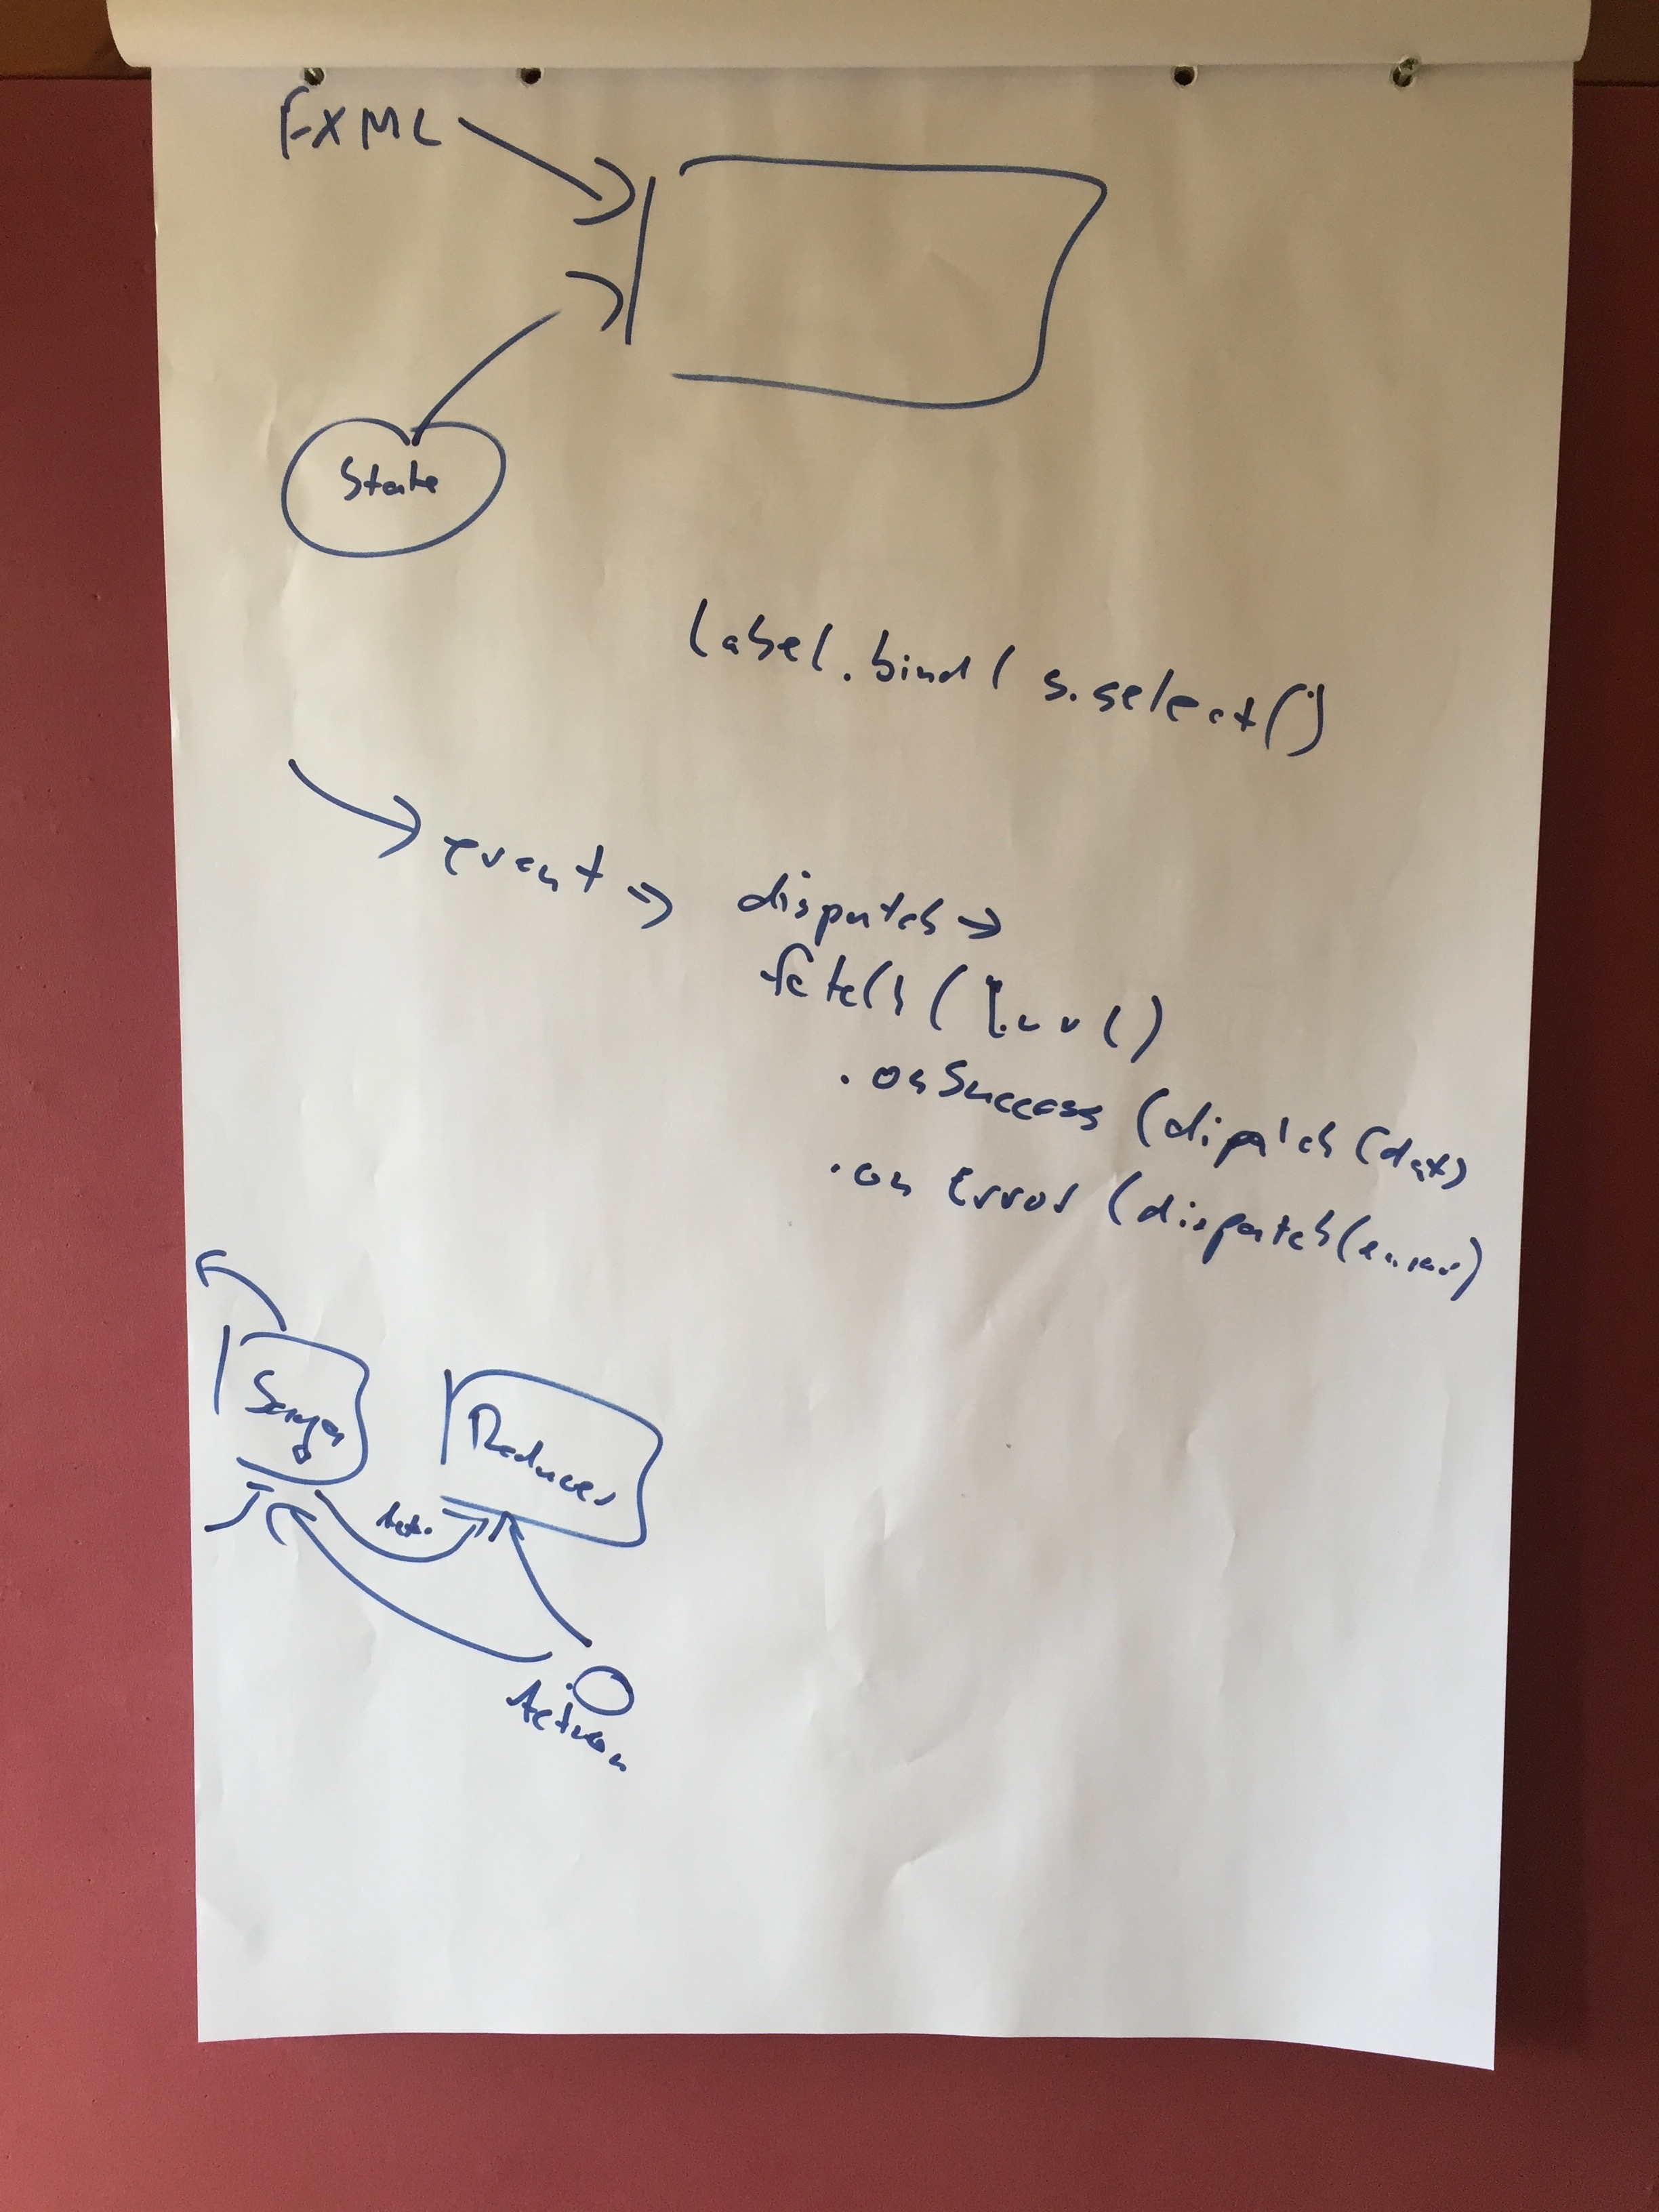 FXML
State
label.bind( s.select()
→ event ⇒ dispatch →
fetch ( url)
.onSuccess (dipatch (dat)
.on Error (dispatch(error)
Saga
Reducer
Action